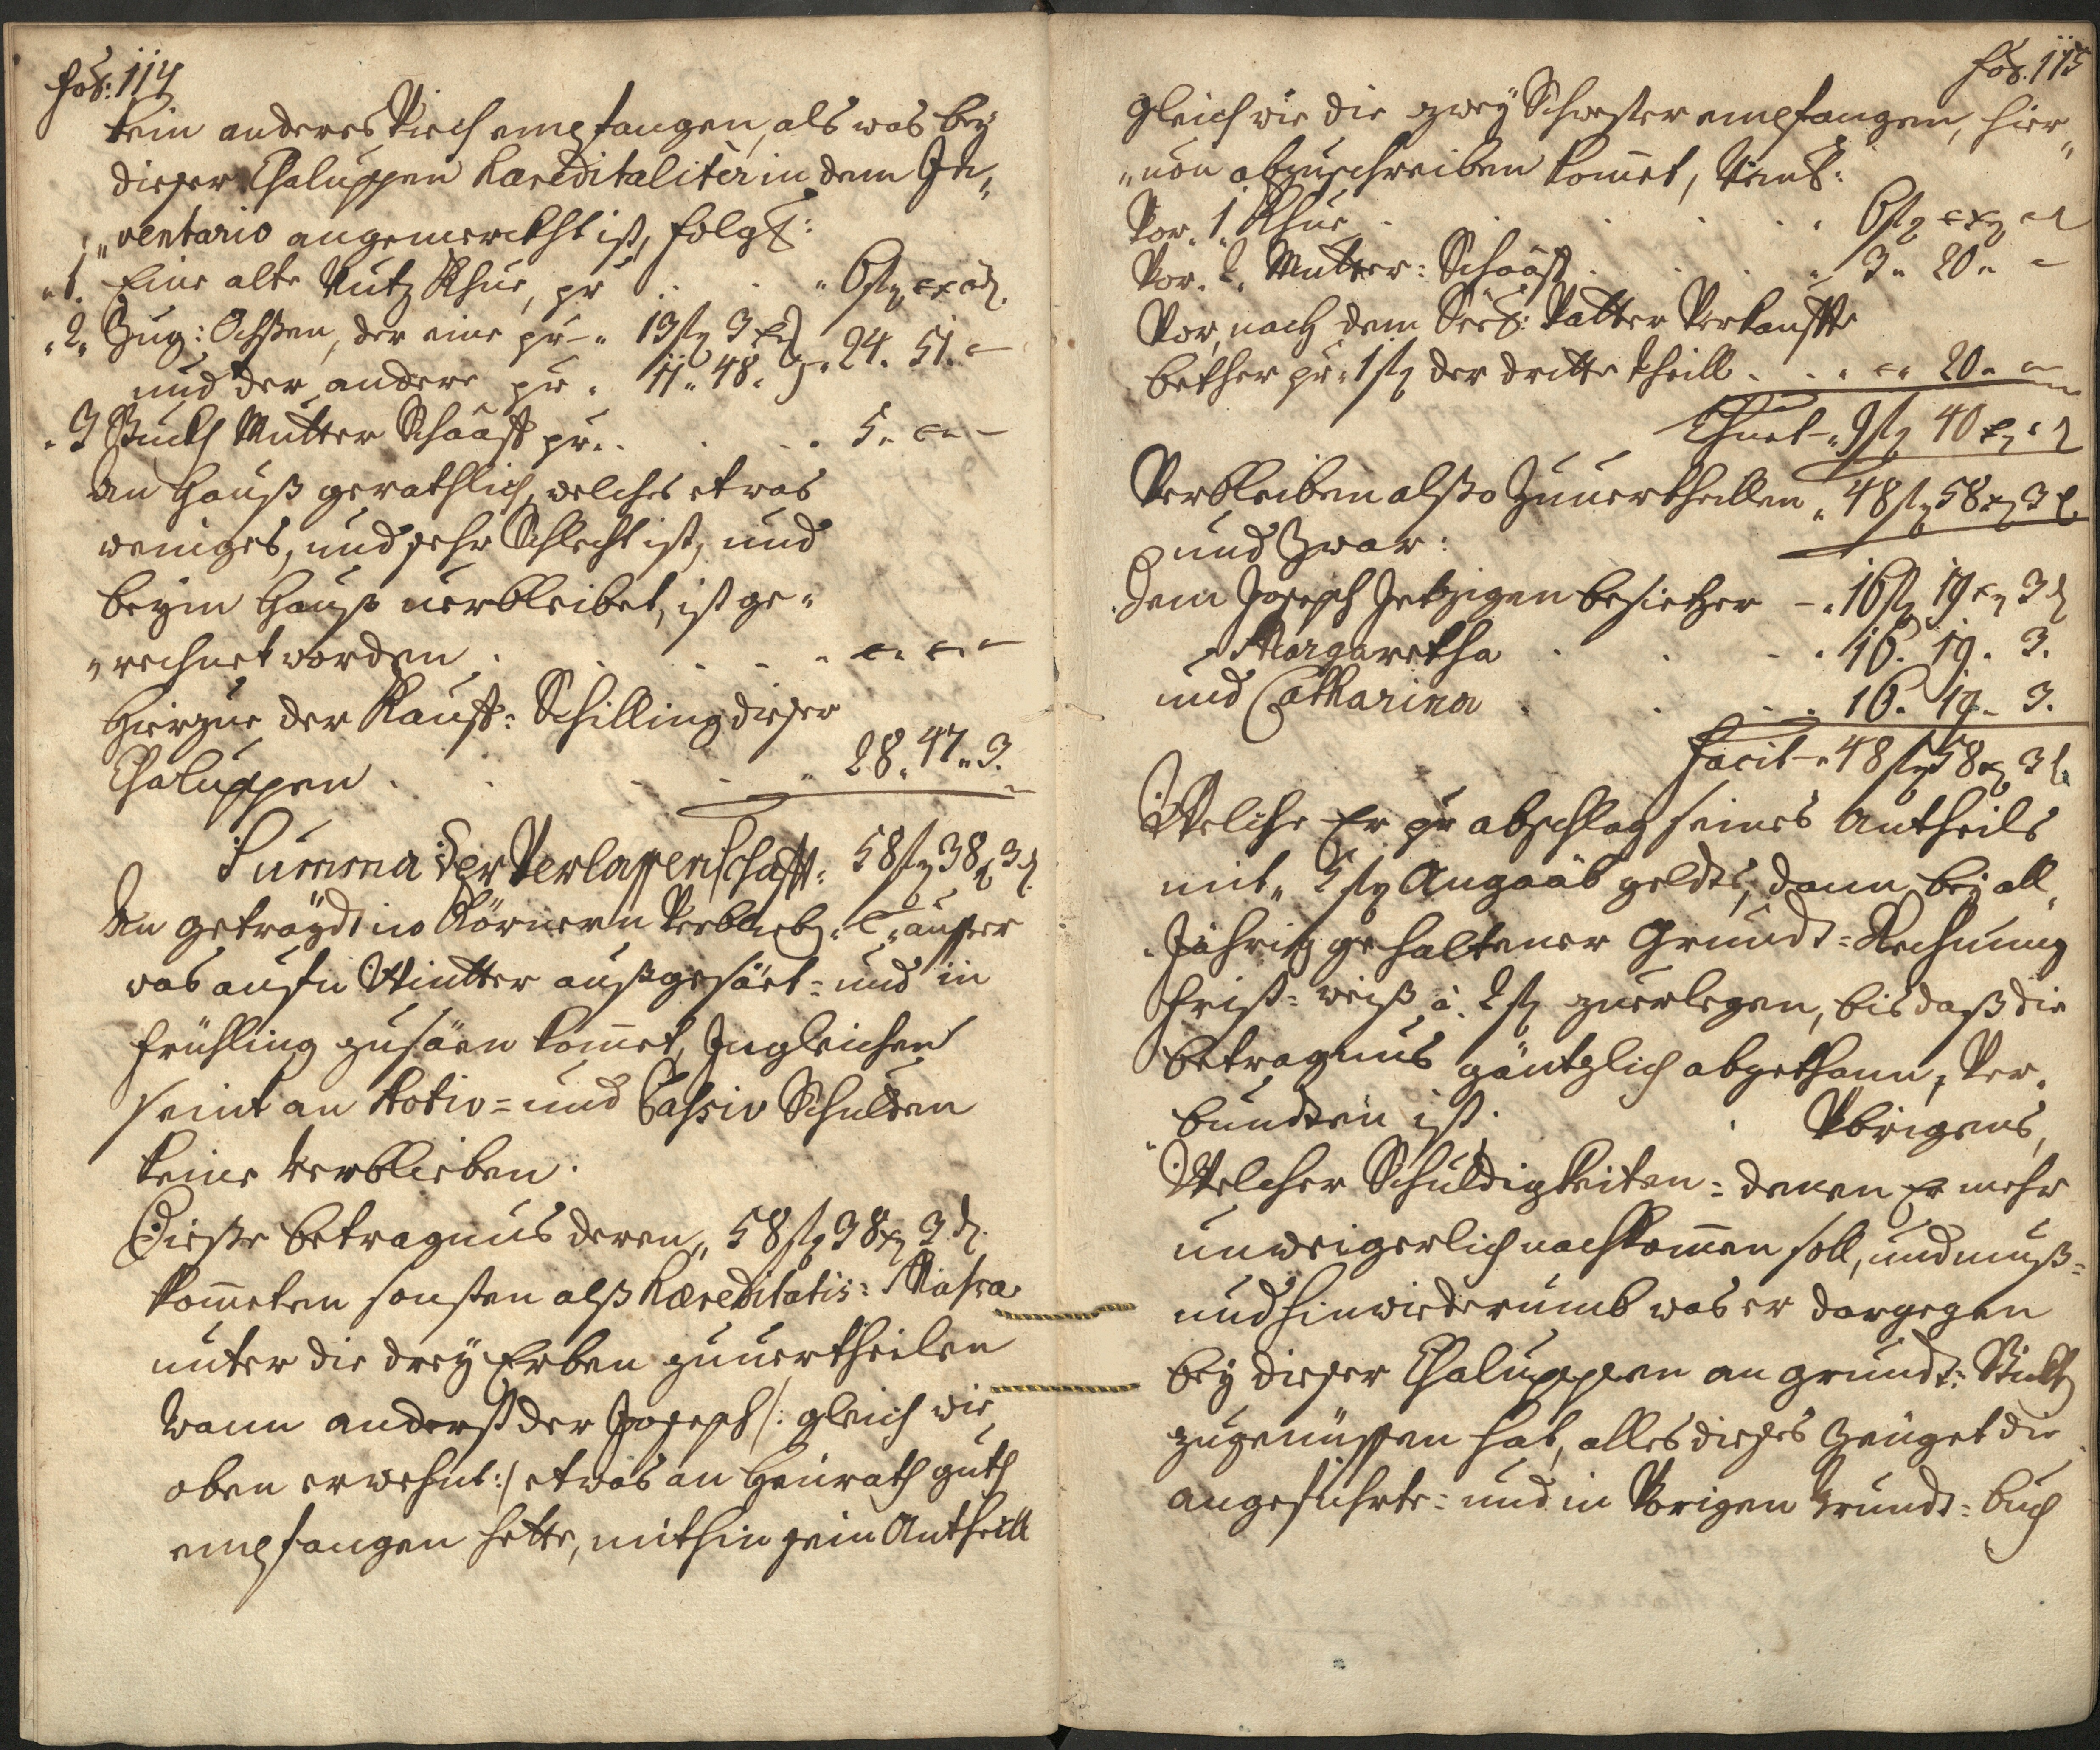 fol: 114
kein anderes Viech empfangen, als was bey
dieser Chaluppen Hæreditaliter in dem In„
„ventario angemerckht ist, folgt:
„1. Eine alte Nutz Khue, pr . . . „ 6 fl „ x „ d.
„2„ Zug: Ochßen, der eine pr „ 13 fl 3 x
und der andere pr „ 11„ 48. } „ 24. 51. „
„3 Stuckh Mutter Schaaff pr . . . . 5. „ „
An Hauß gerathlich, welches etwas
weniges, und sehr Schlecht ist, und
beym Hauß verbleibet, ist ge„
„rechnet worden . . . . „ „ „
Hierzue der Kauff: Schilling dieser
Chaluppen . . . . „ 28„ 47„ 3.
Summa der Verlassenschafft: 58 fl 38 x 3 d.
An getraydt in Körnern Verblieb. „ ausser
was auf'n Wintter außgesäet= und in
Frühling zu säen kommet, Ingleichen
seint an Activ= und Passiv Schulden
keine verblieben.
Dieße betragnus deren „ 58 fl 38 x 3 d.
kommeten sonsten alß Hæreditatis: Massa
unter die drey Erben zuuertheilen
wann anderst der Joseph /: gleich wie
oben erwehnt :/ etwas an Heürath guth
empfangen hette, mithin sein Antheill
fol. 115
gleich wie die zwey Schwester empfangen, hier„
„uon abzuschreiben kommet, bent:
Vor „1„ Khue . . . . . „ 6 fl „ x „ d
Vor „2„ Mutter: Schaaff . . . „ 3„ 20„ „
Vor, nach dem Seel: Vatter Verkauffte
bether pr „1 fl der dritte theill . . „ „ 20„ „
Thuet „ 9 fl 40 x „ d
Verbleiben alßo Zuuertheillen „ 48 fl 58 x 3 d.
und Zwar:
Dem Joseph Jetzigen besietzer „ 16 fl 19 x 3 d
„ Margaretha . . . „ 16. 19. 3.
und Catharina . . . „ 16. 19. 3.
Facit „ 48 fl 58 x 3 d.
Welche Er pr abschlag seines Antheils
mit „ 5 fl Angaab geldts, dann bey all„
„Jährig gehaltener Grundt=Rechnung
frist= weiß à 2 fl zuerlegen, bis daß die
betragnus gäntzlich abgethann, Ver„
„bundten ist. Vbrigens,
Welcher Schuldigkeiten= denen Er mehr
unweigerlich nachkommen soll, und muß=
und hinwiederumb was er dargegen
bey dieser Chaluppen an grundt= Stuckh
zugenüssen hat, alles dieses Zeüget die
angeführte= und in Vorigen Grundt=buch